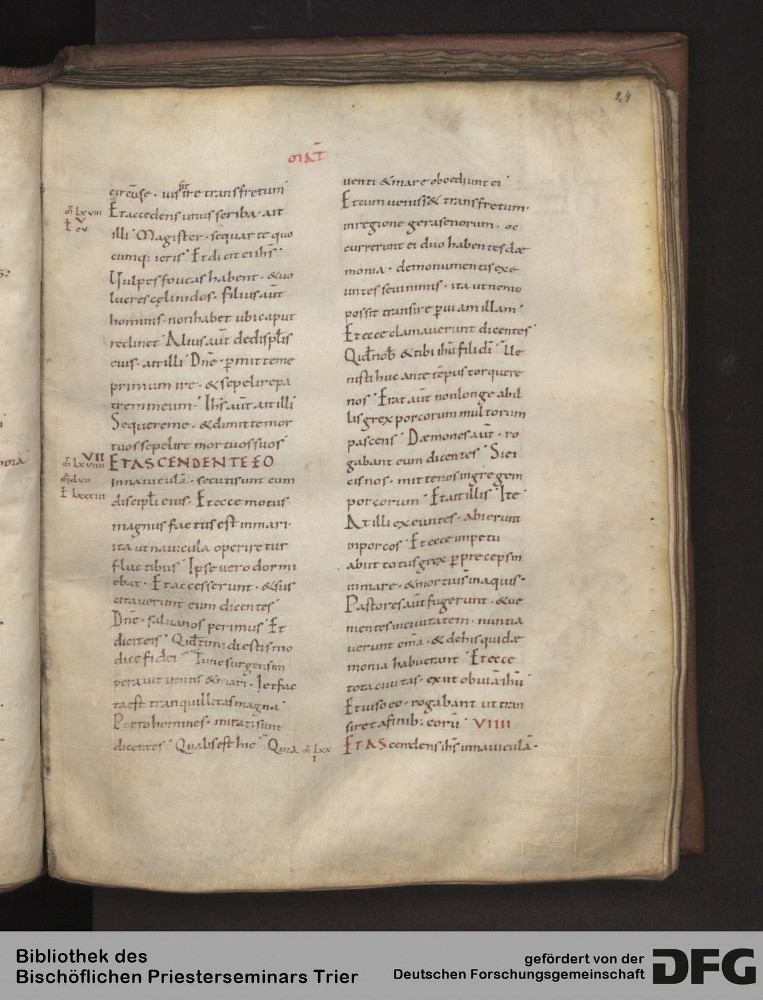 24
MAT̄
circūse · iussit ire transfretum
Et accedens unus scriba · ait
illi · Magister · sequar te quo
cumq; ieris · Et dicit ei ihs̄ ·
Uulpes foueas habent · & uo
lucres cęli nidos · Filius aūt
hominis · non habet ubi caput
reclinet · Alius aūt de disciplīs
eius · ait illi · Dnē · permitte me
primum ire · & sepelire pa
trem meum · Ihs̄ aūt ait illi
Sequere me · & dimitte mor
tuos sepelire mortuos suos
VIII
ET ASCENDENTE EO
in nauiculā · secuti sunt eum
discipli eius · Et ecce motus
magnus factus est in mari ·
ita ut nauicula operiretur
fluctibus · Ipse uero dormi
ebat · Et accesserunt · & sus
citauerunt eum dicentes
Dnē · salua nos perimus · Et
dicit eis · Quid timidi estis mo
dice fidei · Tunc surgens im
perauit uentis & mari · Et fac
ta est tranquillitas magna ·
Porro homines · mirati sunt
dicentes · Qualis est hic · Quia
uenti & mare oboediunt ei
Et cum uenisset transfretum ·
in regione gerasenorum · oc
currerunt ei duo habentes dæ
monia · de monumentis exe
untes seui nimis · ita ut nemo
possit transire p uiam illam ·
Et ecce clamauerunt dicentes ·
Quid nob & tibi ihū fili dī · Ue
nisti huc ante tēpus torquere
nos · Erat aūt non longe ab il
lis grex porcorum multorum
pascens · Dæmones aūt · ro
gabant eum dicentes · Si ei
cis nos · mitte nos in gregem
porcorum · Et ait illis · Ite ·
At illi exeuntes · abierunt
in porcos · Et ecce impetu
abiit totus grex p preceps in
in mare · & mortui s̄ in aquis ·
Pastores aūt fugerunt · & ue
nientes in ciuitatem · nuntia
uerunt omīa · & de his qui dæ
monia habuerant · Et ecce
tota ciuitas · exiit obuiā ihū
Et uiso eo · rogabant ut tran
siret a finib; eorū · VIIII
ET AScendens ihs̄ in nauiculā ·
Bibliothek des
Bischöflichen Priesterseminars Trier
gefördert von der
Deutschen Forschungsgemeinschaft
DFG